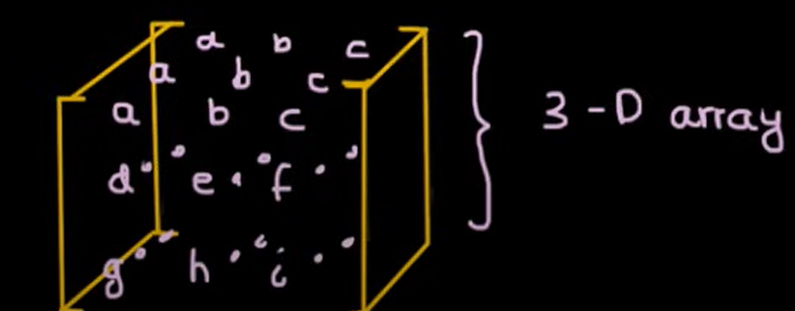 a b c
a b c
a b c
d e f
g h i
3-D array